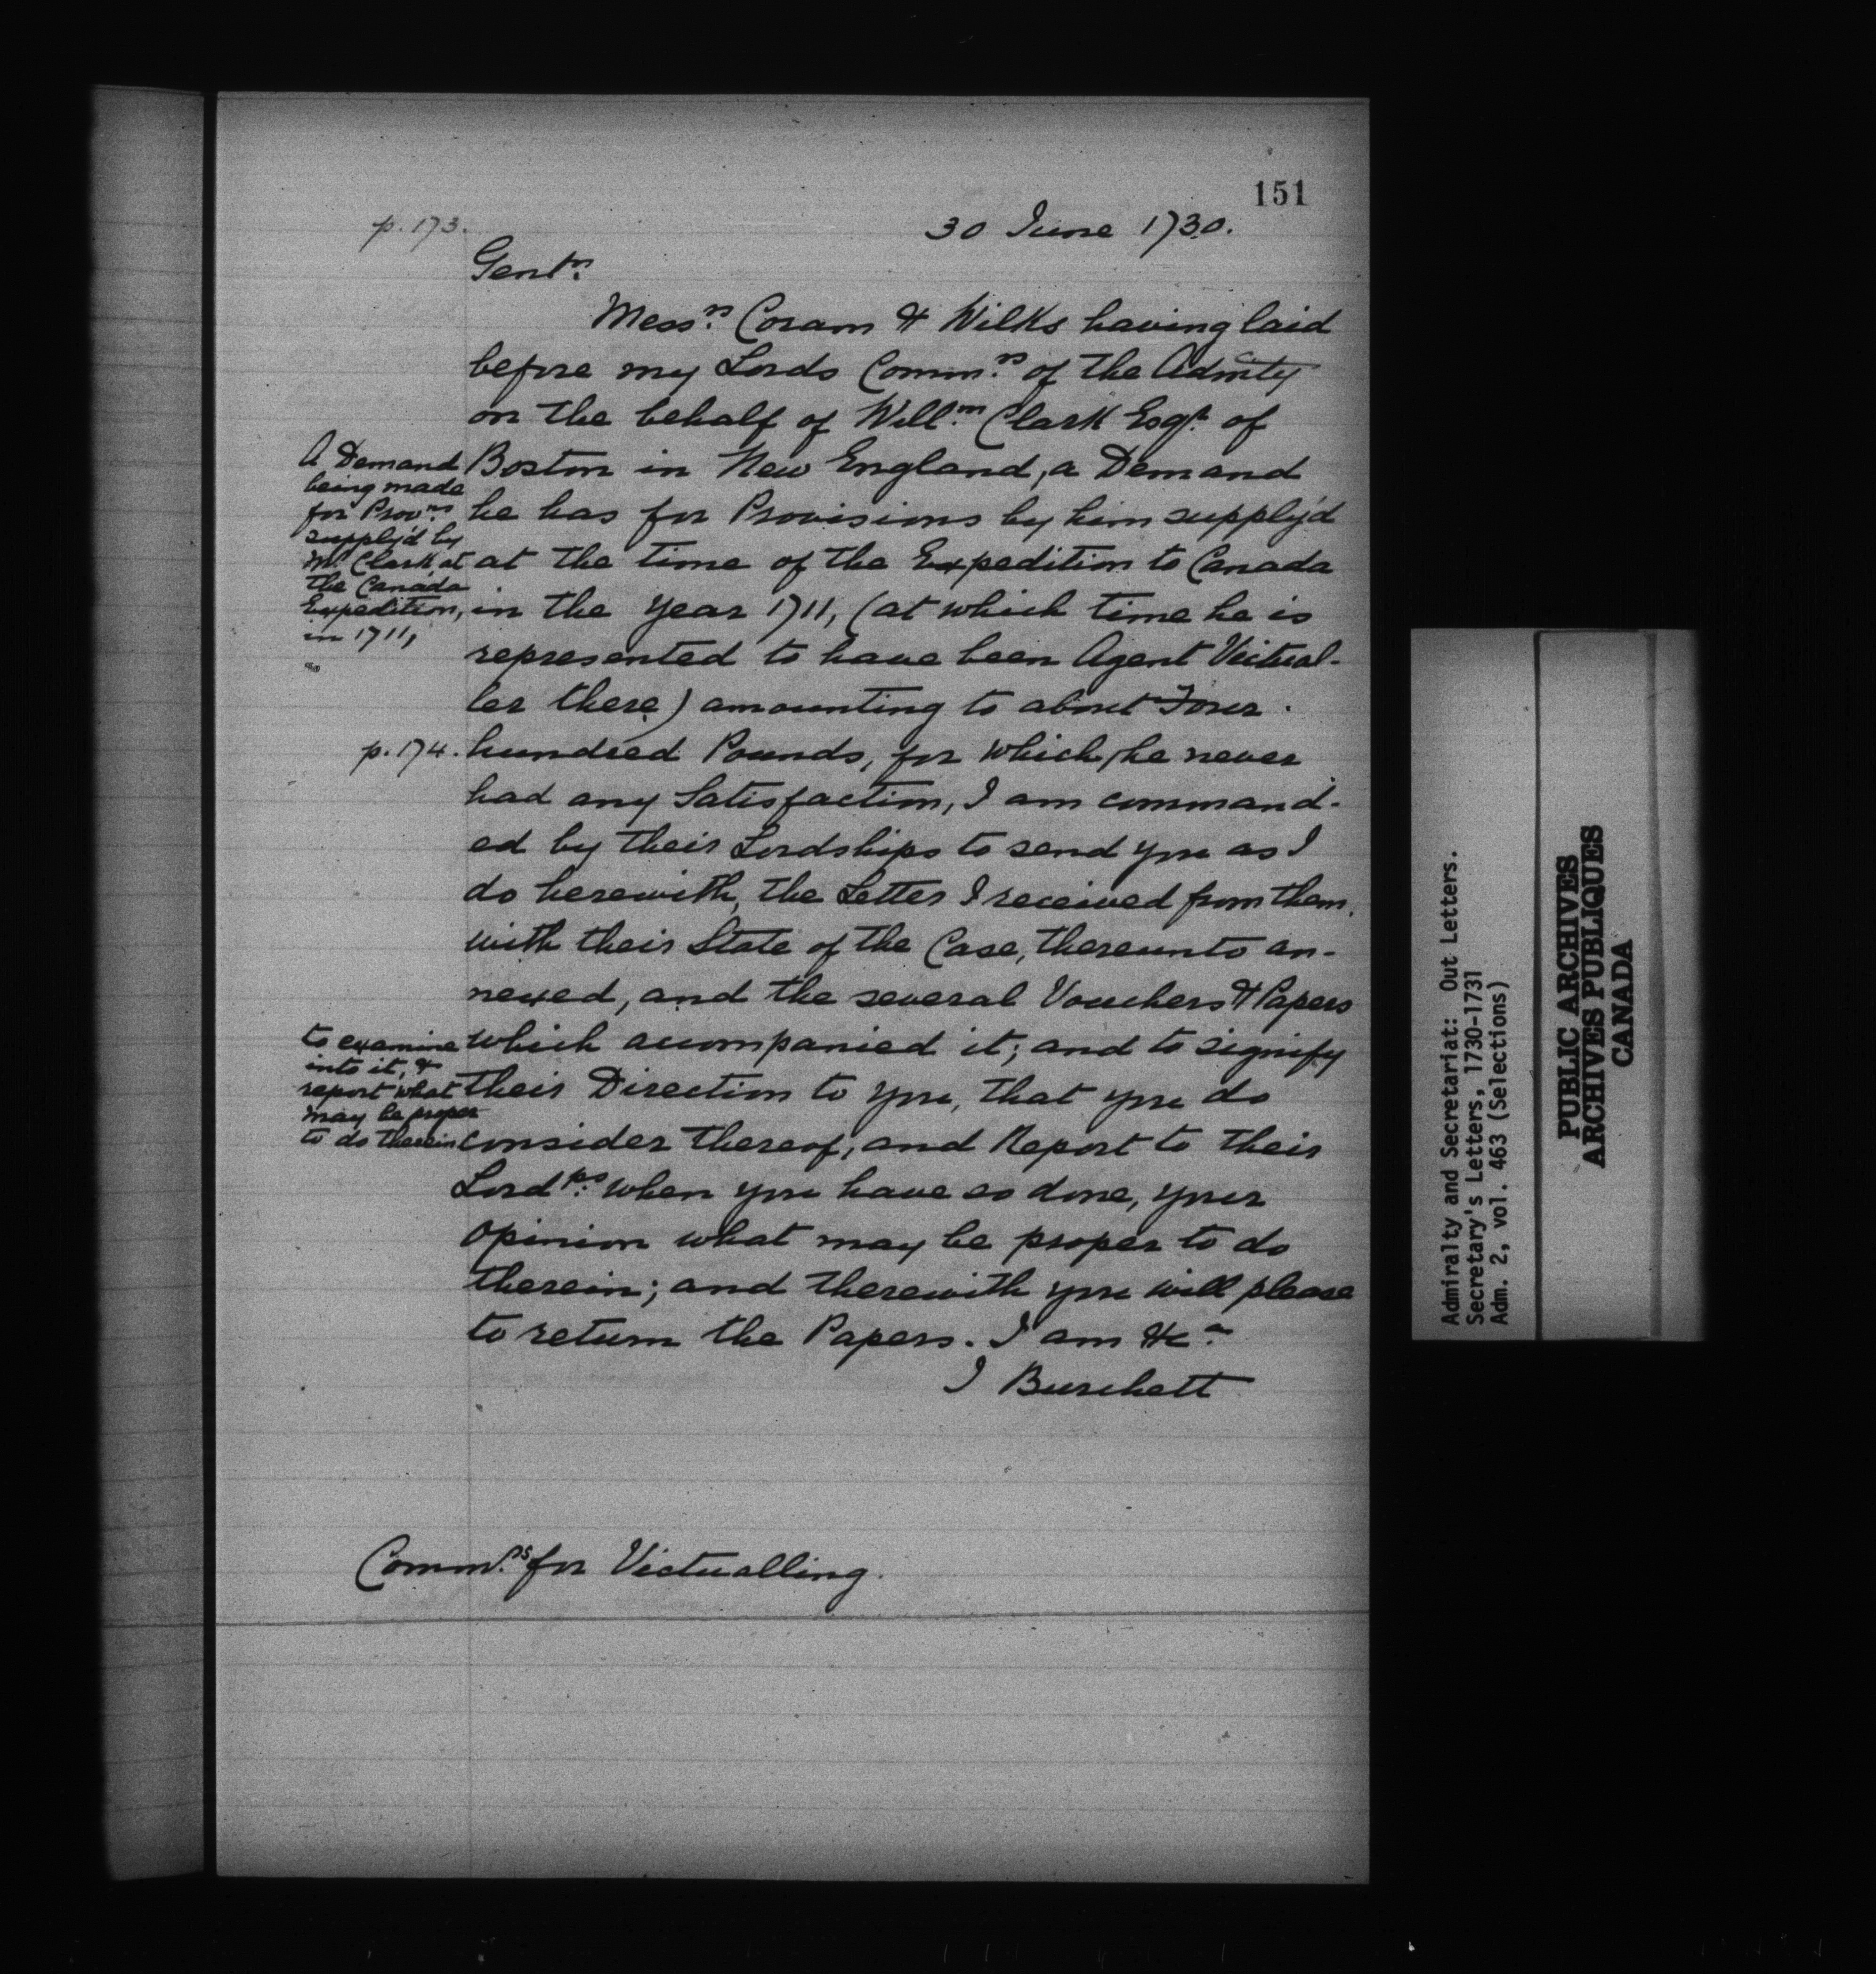 151
p. 173.
30 June 1730.
Gentn.
Messrs. Coram & Wilks having laid
before my Lords Commrs. of the Admty
on the behalf of Willm. Clark Esqr. of
Boston in New England, a Demand
he has for Provisions by him supply'd
at the time of the Expedition to Canada
in the Year 1711, (at which time he is
represented to have been Agent Victual-
ler there) amounting to about Four
p. 174. hundred Pounds, for which he never
had any Satisfaction, I am command-
ed by their Lordships to send you as I
do herewith, the Letter I received from them,
with their State of the Case, thereunto an-
nexed, and the several Vouchers & Papers
which accompanied it; and to signify
their Direction to you, that you do
consider thereof, and Report to their
Lordps. when you have so done, your
Opinion what may be proper to do
therein; and therewith you will please
to return the Papers. I am &ca.
J Burchett
A Demand
being made
for Provns.
supply'd by
Mr. Clark at
the Canada
Expedition,
in 1711,
to examine
into it, &
report what
may be proper
to do therein
Commrs. for Victualling.
Admiralty and Secretariat: Out Letters.
Secretary's Letters, 1730-1731
Adm. 2, vol. 463 (Selections)
PUBLIC ARCHIVES
ARCHIVES PUBLIQUES
CANADA